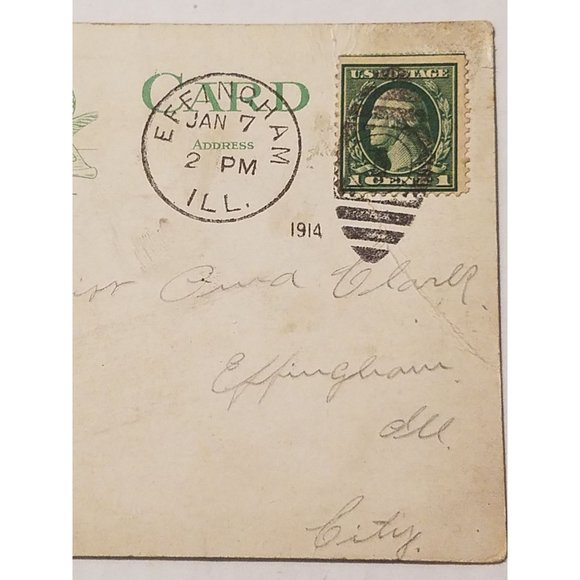 CARD
ADDRESS
EFFINGHAM
JAN 7
2 PM
ILL.
1914
U.S. POSTAGE
1 CENT 1
Clark
Effingham
Ill
City.